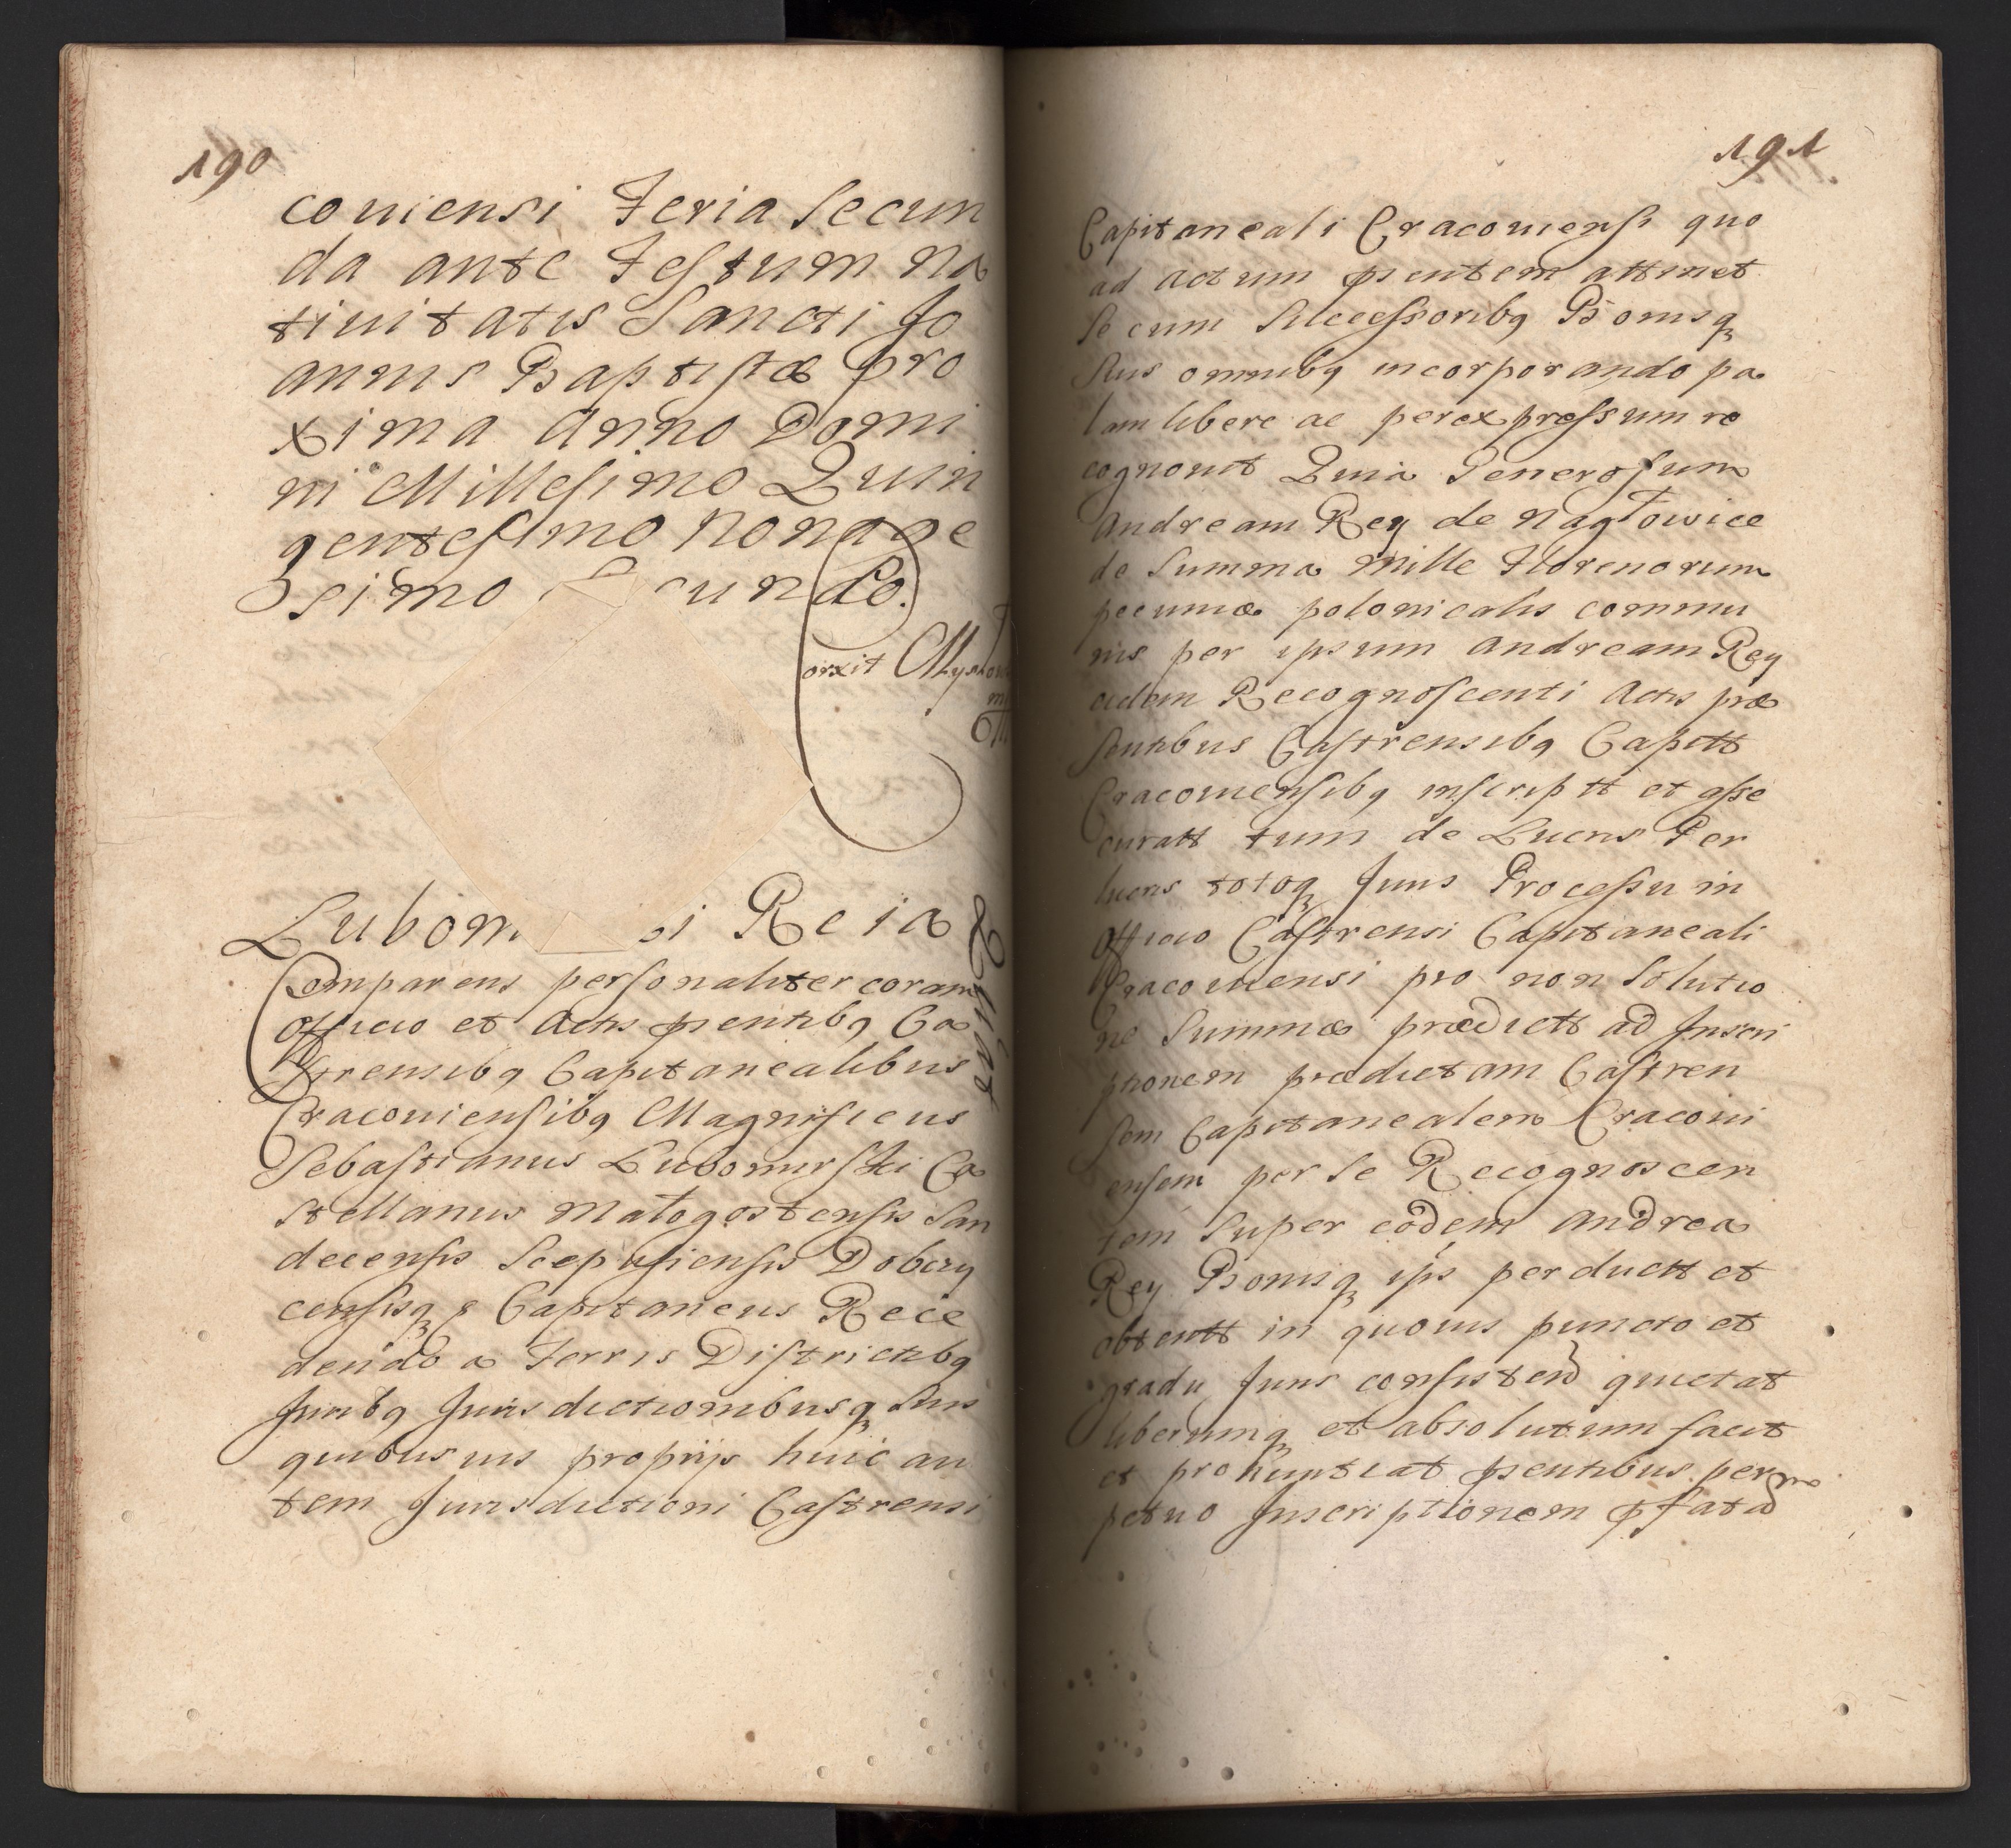 190
couiensi Feria Secun
da ante Festum Na
tiuitatis Sancti Jo
annis Baptistæ pro
xima Anno Domi
ni Millesimo Quin
gentesimo Nonage
simo cundo.
orxit
Lubom si Reia
Quietat
Comparens personaliter coram
Officio et Actis pñtibq Ca
strensibq Capitanealibus
Cracouiensibq Magnificus
Sebastianus Lubomirski Ca
stellanus Małogostensis San
decensis Scepusiensis Dobczy
censisq Capitaneus Rece
dendo a Terris Districtibq
Juribq Jurisdictionibusq Suis
quibusuis proprijs huic au
tem Jurisdictioni Castrensi
191
Capitaneali Cracouiensi quo
ad actum pñtem attinet
Se cum Successoribq Bonisq
Suis omnibq incorporando pa
lam libere ac per expressum re
cognouit Quia Generosum
Andream Rey de Nagłowice
de Summa Mille Florenorum
pecuniæ polonicalis commu
nis per ipsum Andream Rey
eidem Recognoscenti Actis præ
sentibus Castrensibq Capitt
Cracouiensibq inscriptt et asse
curatt tum de Lucris Per
lucris totoq Juris Processu in
Officio Castrensi Capitaneali
Cracouiensi pro non Solutio
ne Summæ prædictt ad Inscri
ptionem prædictam Castren
sem Capitanealem Cracoui
ensem per Se Recognoscen
tem Super eodem Andrea
Rey Bonisq ips perductt et
obtentt in quouis puncto et
gradu Juris consistend quietat
liberumq et absolutum facit
et pronuntiat pñtibus perpm
petuo Inscriptionem pfatã